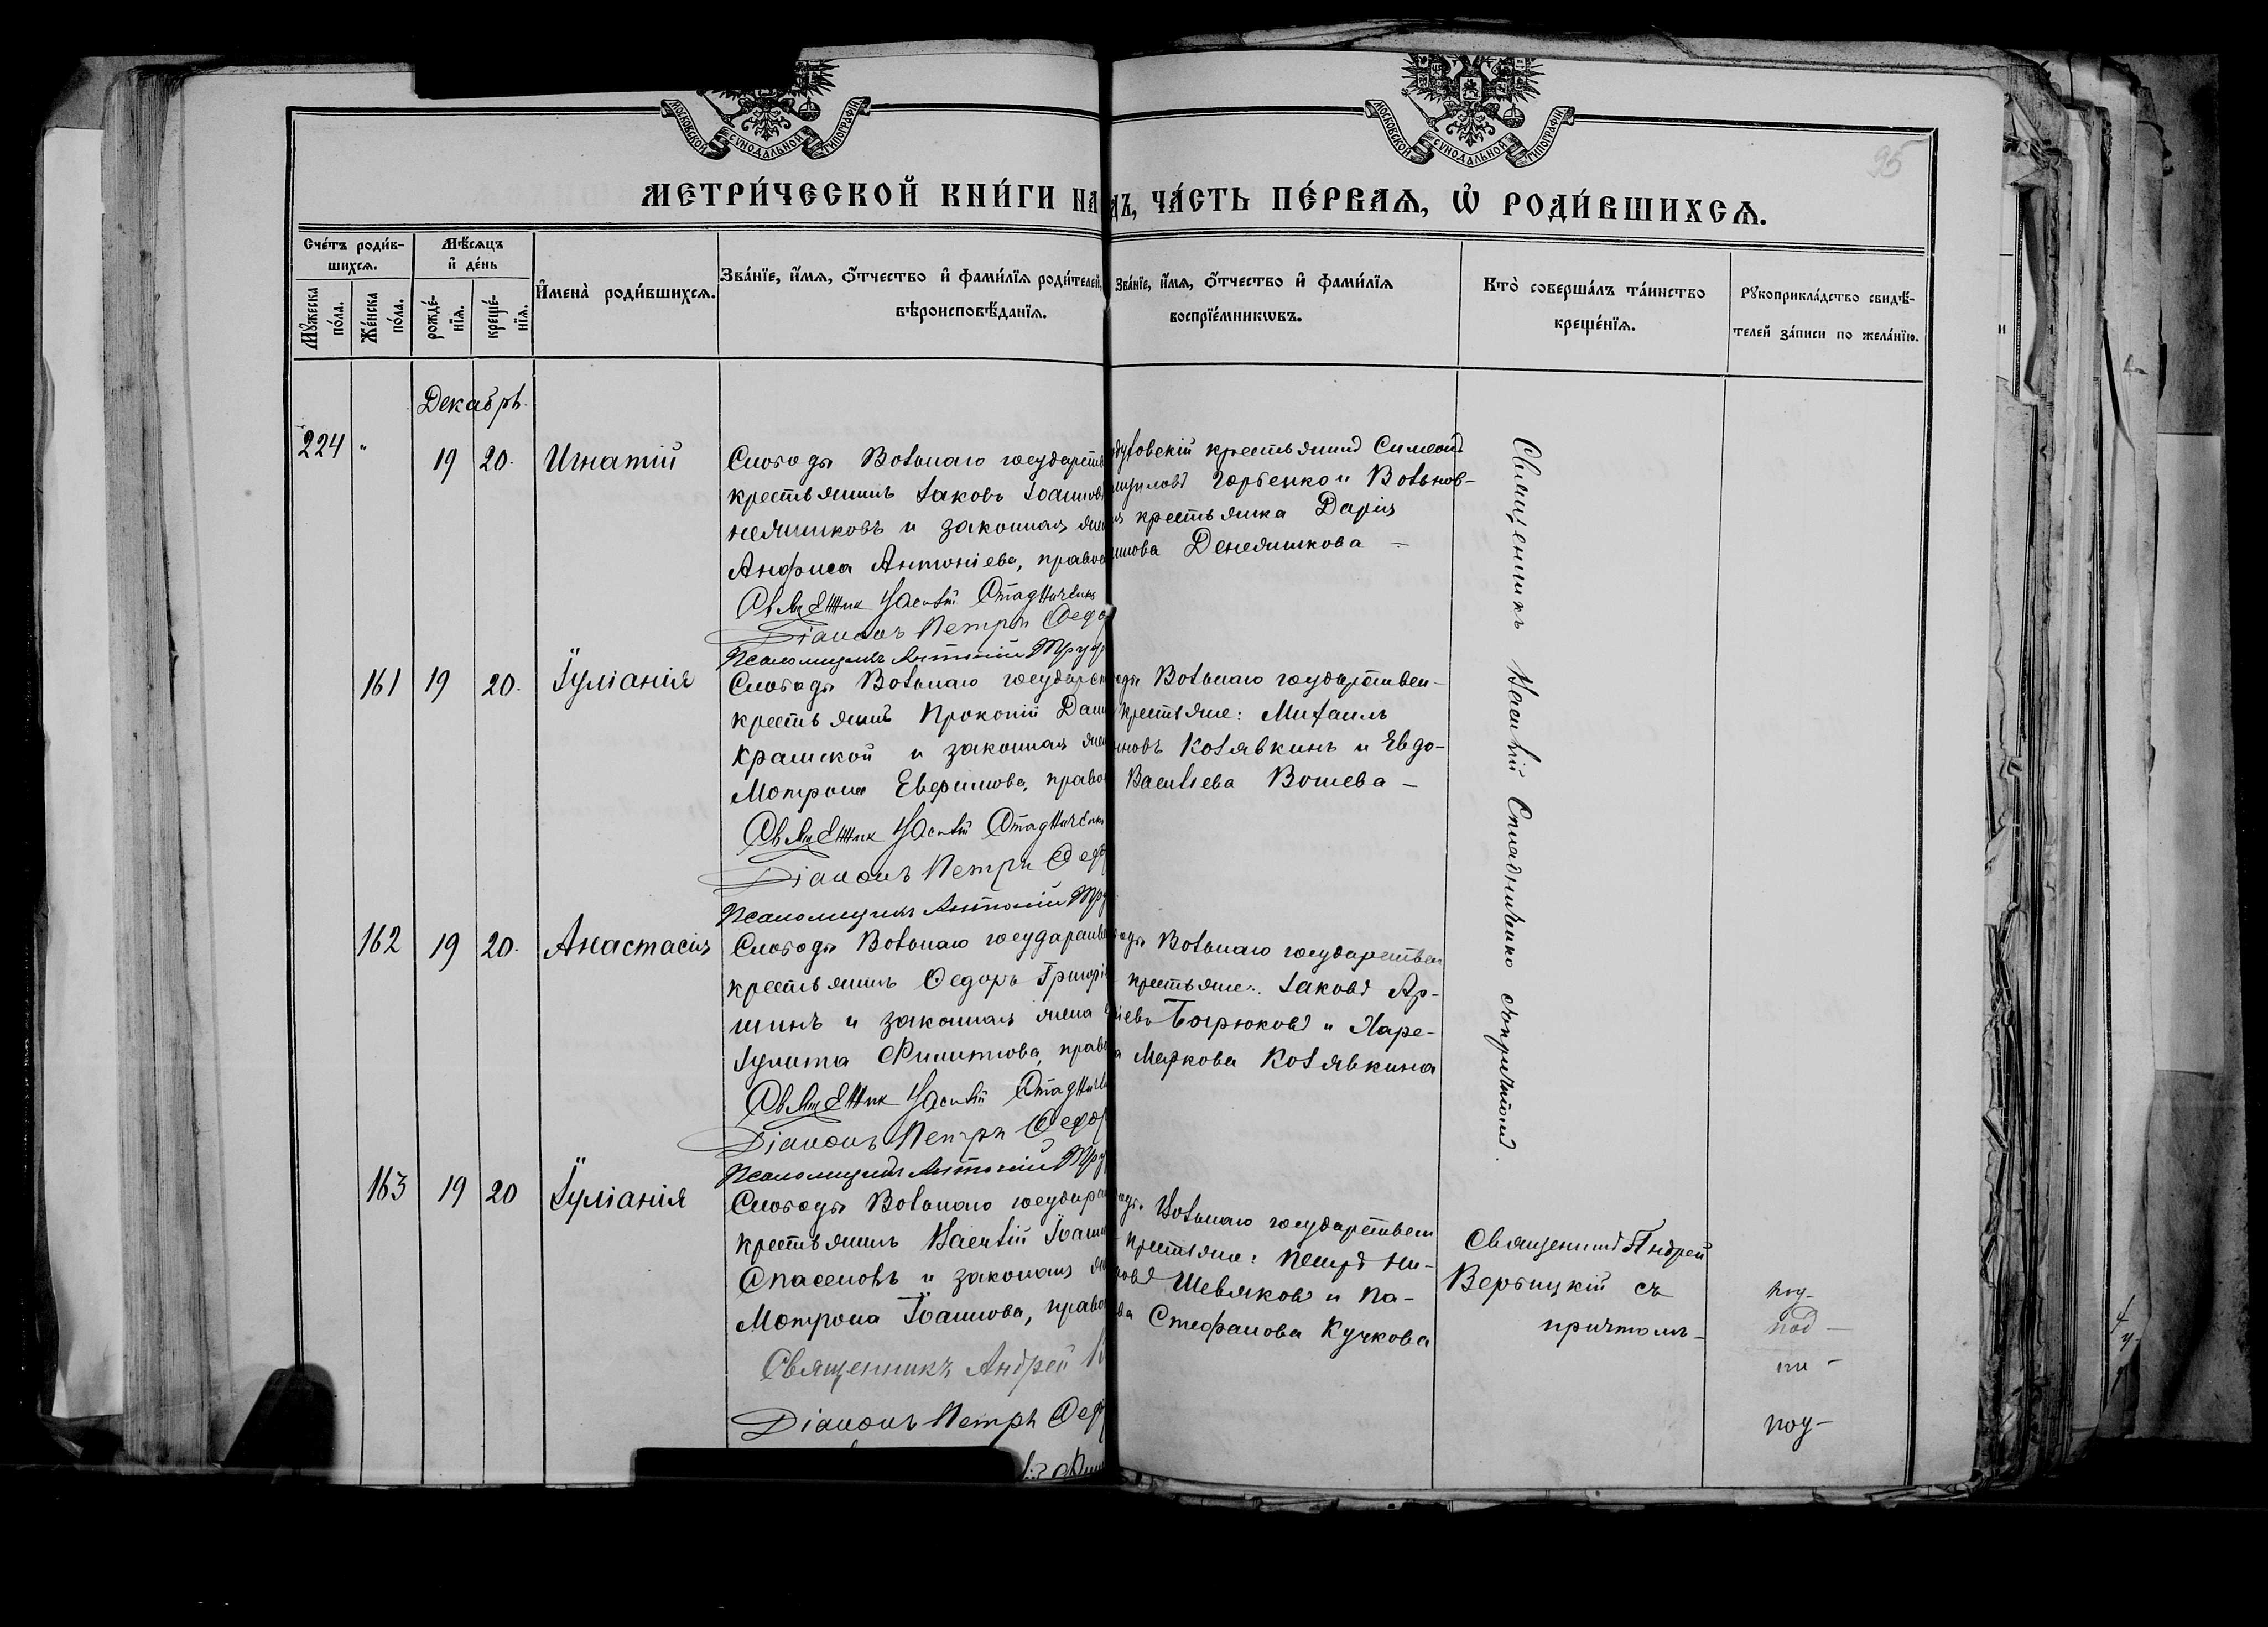 МОСКОВСКОЙ СѴНОДАЛЬНОЙ ТИПОГРАФІИ
МОСКОВСКОЙ СѴНОДАЛЬНОЙ ТИПОГРАФІИ
95
МЕТРИ́ЧЕСКОЙ КНИ́ГИ НА
ДЪ, ЧА́СТЬ ПЕ́РВАѦ, Ѡ҆ РОДИ́ВШИХСѦ.
Сче́тъ роди́в-
шихсѧ.
Мѣ́сѧцъ
и҆ де́нь
Мꙋ́жеска
по́ла.
Же́нска
по́ла.
рожде́-
нїѧ.
креще́-
нїѧ.
И҆мена̀ роди́вшихсѧ.
Зва́нїе, и҆́мѧ, ѻ҆́тчество и҆ фами́лїѧ роди́телей,
вѣроисповѣ́данїѧ.
Зва́нїе, и҆́мѧ, ѻ҆́тчество и҆ фами́лїѧ
воспрїе́мникѡвъ.
Кто̀ соверша́лъ та́инство
креще́нїѧ.
Рꙋкоприкла́дство свидѣ́-
телей за́писи по жела́нїю.
Декабрь
224 " 19 20. Игнатій
Слободы Вольнаго государств
крестьянинъ Іаковъ Іоаннов
нежниковъ и законная жен
Анфиса Антоніева, правос
Священик Василій Стадниченк
Діаконъ Петръ Федо
Псаломщикъ Антоній Труф
крестьянинъ Симеонъ
Горбенко и Вольнов-
крестьянка Дарія
Денежникова —
Священникъ Василій Стадниченко съ причтомъ.
161 19 20. Іуліанія
Слободы Вольнаго государст
крестьянинъ Прокопій Дані
Крамской и законная жен
Мотрона Евфимова, право
Священик Василій Стадниченк
Діаконъ Петръ Федо
Псаломщикъ Антоній Тру
Вольнаго государствен-
крестьяне: Михаилъ
Козявкинъ и Евдо-
Васильева Вошева —
162 19 20. Анастасія
Слободы Вольнаго государств
крестьянинъ Федоръ Григорі
шинъ и законная жена
Іулита Филиппова, право
Священик Василій Стадни
Діаконъ Петръ Федор
Псаломщикъ Антоній Тру
Вольнаго государствен
крестьяне: Іаковъ Ар-
Бирюковъ и Паре-
Маркова Козявкина
163 19 20 Іуліанія
Слободы Вольнаго государст
крестьянинъ Василій Іоанн
Спасеновъ и законная же
Мотрона Іоаннова, право
Священникъ Андрей
Діаконъ Петръ Федо
Вольнаго государствен
крестьяне: Петръ Ни-
Шевляковъ и Па-
Стефанова Кучкова
Священникъ Андрей
Вербицкій съ
причтомъ —